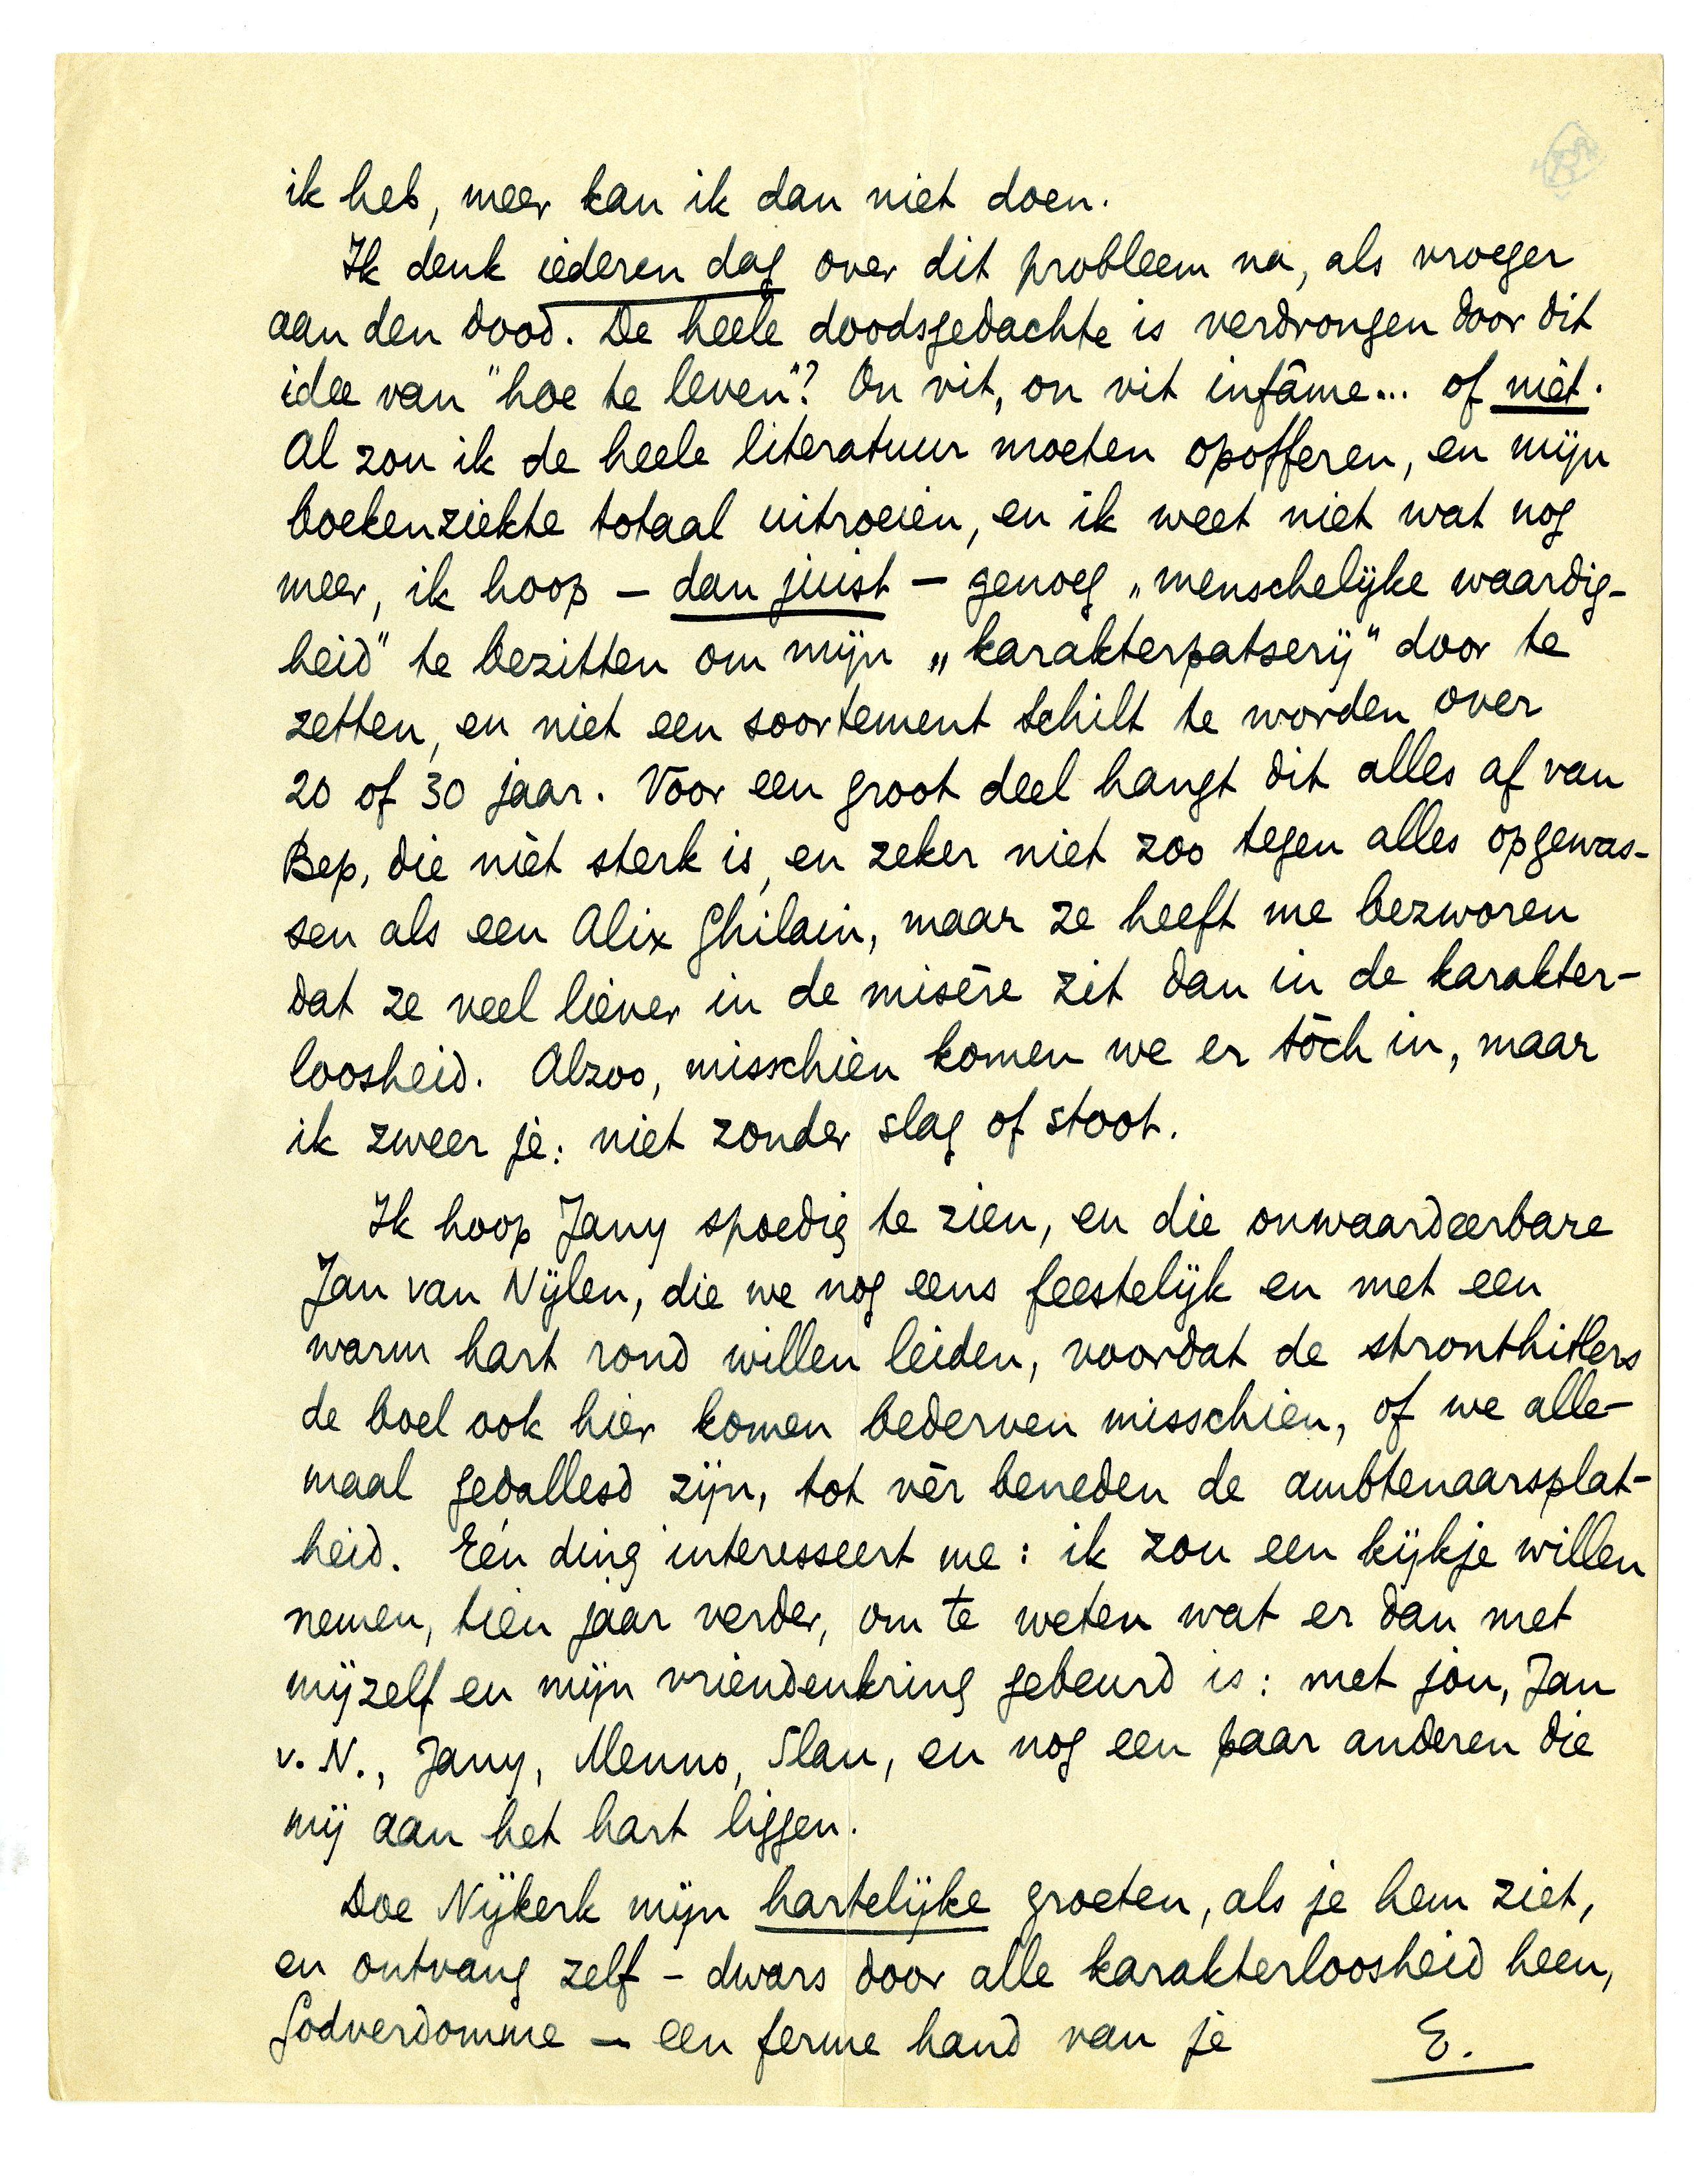 ik heb, meer kan ik dan niet doen.
Ik denk iederen dag over dit probleem na, als vroeger
aan den dood. De heele doodsgedachte is verdrongen door dit
idee van "hoe te leven"? On vit, on vit infâme... of niét.
Al zou ik de heele literatuur moeten opofferen, en mijn
boekenziekte totaal uitroeien, en ik weet niet wat nog
meer, ik hoop — dan juist — genoeg „menschelijke waardig-
heid" te bezitten om mijn „karakterpatserij" door te
zetten, en niet een soortement Schilt te worden over
20 of 30 jaar. Voor een groot deel hangt dit alles af van
Bep, die niét sterk is, en zeker niet zoo tegen alles opgewas-
sen als een Alix Ghilain, maar ze heeft me bezworen
dat ze veel liever in de misère zit dan in de karakter-
loosheid. Alzoo, misschien komen we er tòch in, maar
ik zweer je: niet zonder slag of stoot.
Ik hoop Jany spoedig te zien, en die onwaardeerbare
Jan van Nijlen, die we nog eens feestelijk en met een
warm hart rond willen leiden, voordat de stronthitlers
de boel ook hier komen bederven misschien, of we alle-
maal gedallesd zijn, tot vèr beneden de ambtenaarsplat-
heid. Eén ding interesseert me: ik zou een kijkje willen
nemen, tien jaar verder, om te weten wat er dan met
mijzelf en mijn vriendenkring gebeurd is: met jou, Jan
v. N., Jany, Menno, Slau, en nog een paar anderen die
mij aan het hart liggen.
Doe Nijkerk mijn hartelijke groeten, als je hem ziet,
en ontvang zelf – dwars door alle karakterloosheid heen,
Godverdomme — een ferme hand van je E.